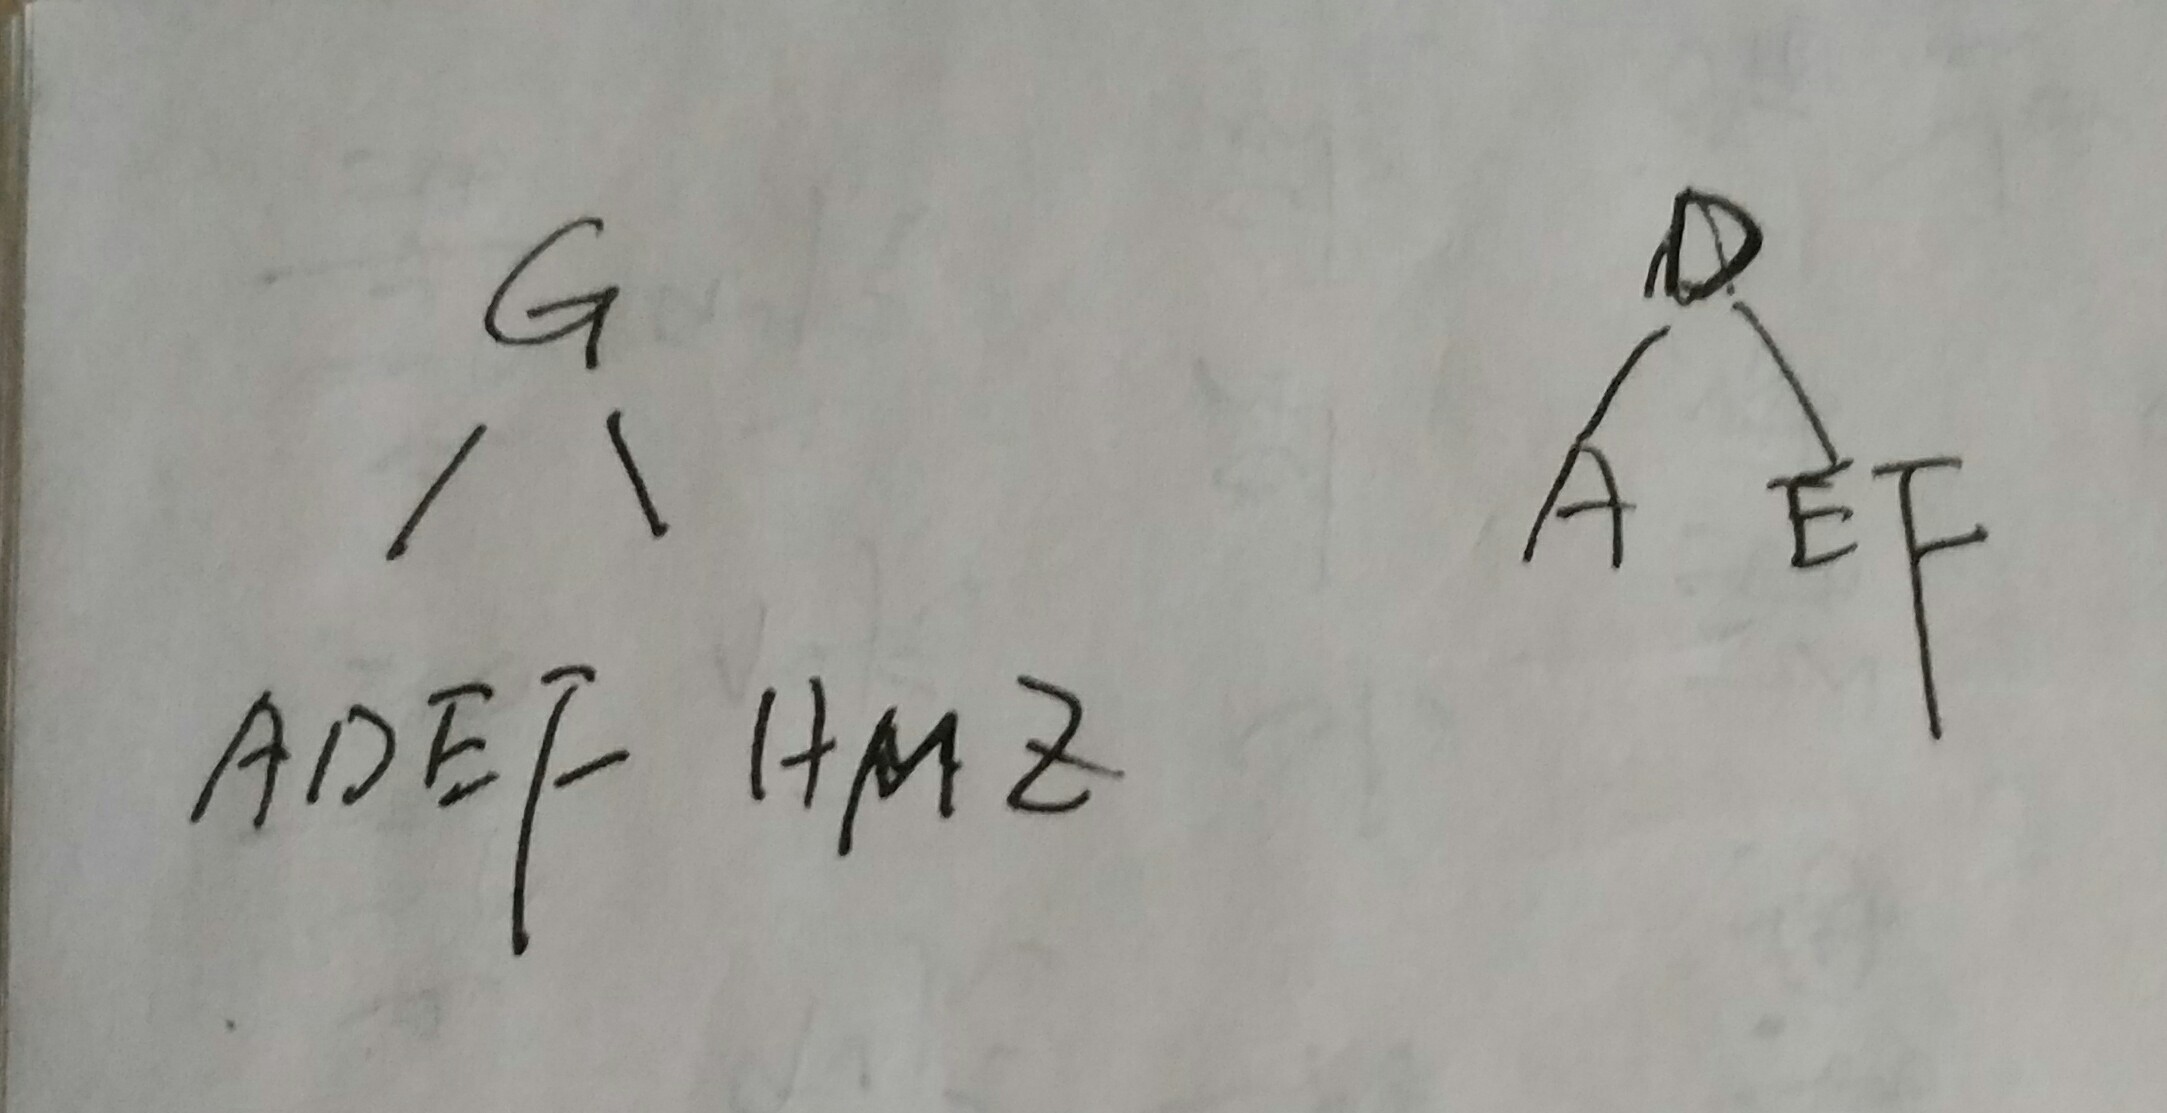 G
ADEF HMZ
D
A EF